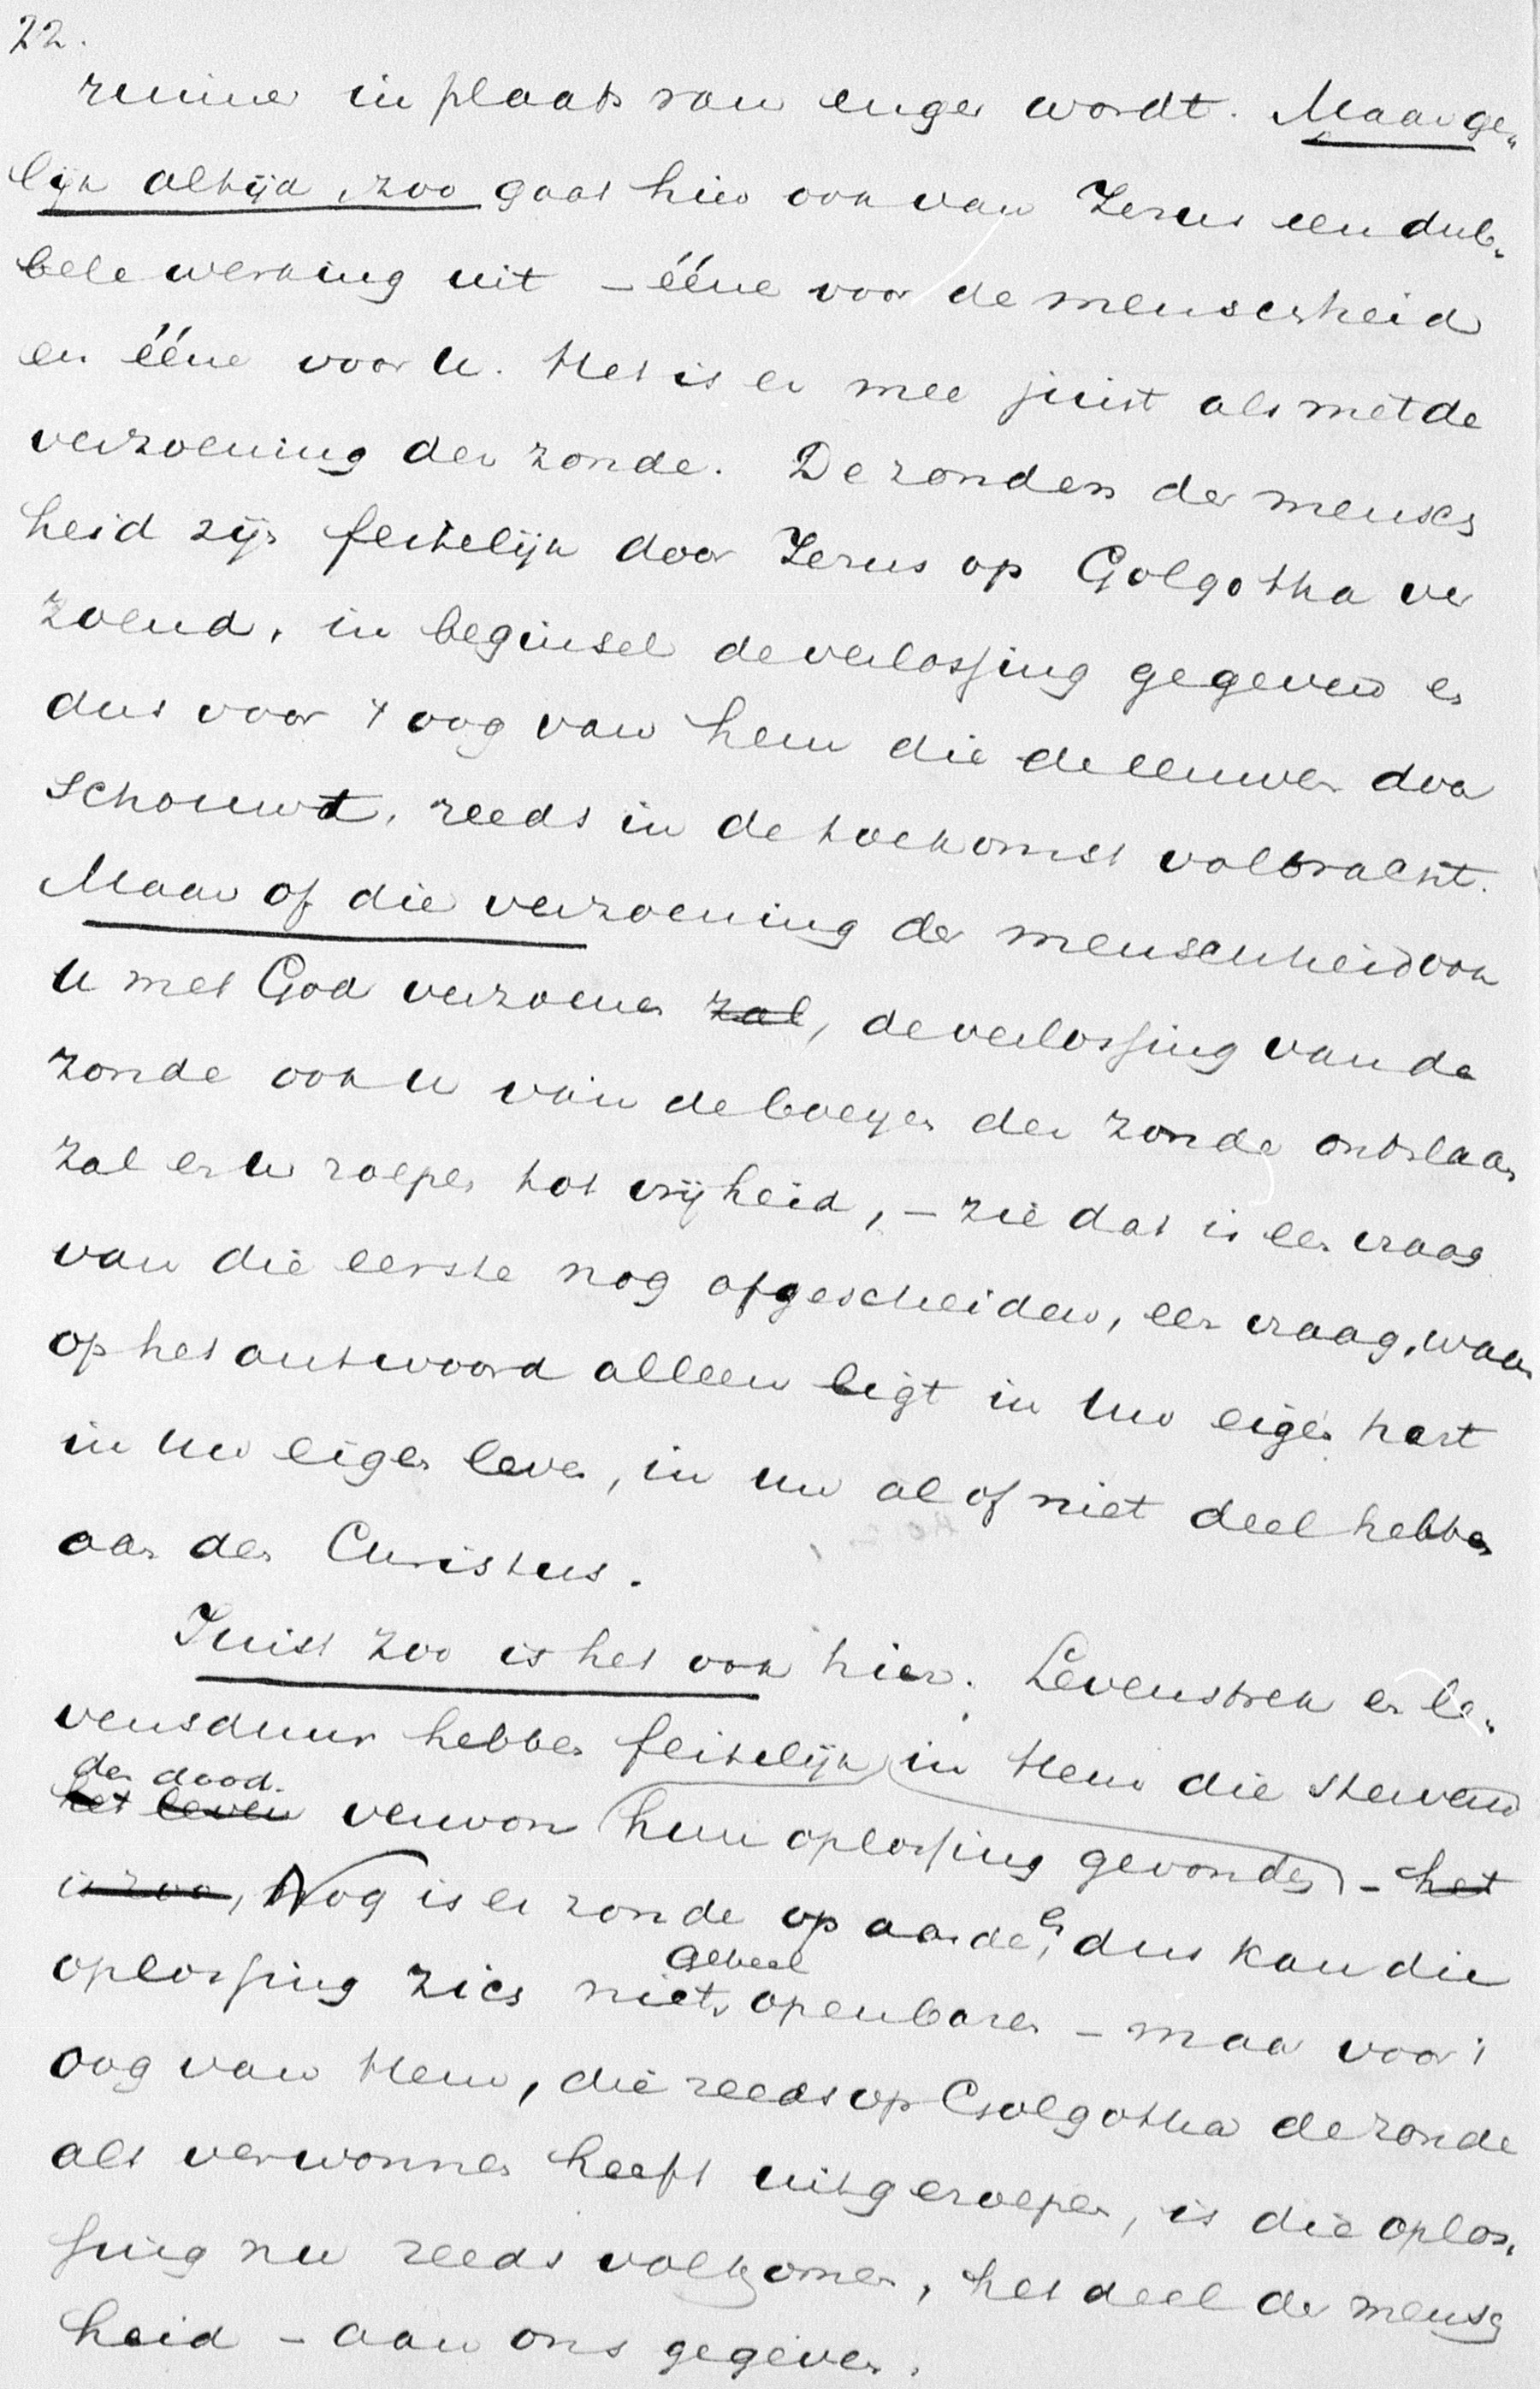 22.
ruimer in plaats van enger wordt. Maar ge„
lijk altijd, zoo gaat hier ook van Jezus een dub„
bele werking uit – ééne voor de menschheid
en ééne voor u. Het is er mee juist als met de
verzoening der zonde. De zonden der mensch
heid zijn feitelijk door Jezus op Golgotha ver
zoend, in beginsel de verlossing gegeven en
dus voor 't oog van hem die de eeuwen door
schouwt, reeds in de toekomst volbracht.
Maar of die verzoening der menschheid ook
u met God verzoenen zal, de verlossing van de
zonde ook u van de boeyen der zonde ontslaan
zal en u roepen tot vrijheid, – zie dat is een vraag
van die eerste nog afgescheiden, een vraag, waar
op het antwoord alleen ligt in uw eigen hart
in uw eigen leven, in uw al of niet deel hebben
aan den Christus.
Juist zoo is het ook hier. Levenstrek en le„
vensduur hebben feitelijk in Hem die stervend
den dood.
het leven verwon hun oplossing gevonden – het
is zoo, Nog is er zonde op aarde, en dus kan die
geheel
oplossing zich niet openbaren – maar voor 't
oog van Hem, die reeds op Golgotha de zonde
als verwonnen heeft uitgeroepen, is die oplos„
sing nu reeds volkomen, het deel der mensch
heid – aan ons gegeven.